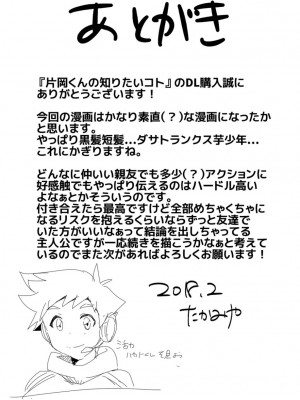 あとがき
『片岡くんの知りたいコト』のDL購入誠に
ありがとうございます！
今回の漫画はかなり素直(？)な漫画になったか
と思います。
やっぱり黒髪短髪…ダサトランクス芋少年…
これにかぎりますね。
どんなに仲いい親友でも多少(？)アクションに
好感触でもやっぱり伝えるのはハードル高い
よなぁとかそういうのです。
付き合えたら最高ですけど全部めちゃくちゃに
なるリスクを抱えるくらいならずっと友達で
いた方がいいなぁって結論を出しちゃってる
主人公ですが一応続きを描こうかなぁと考えて
いるのでまた次があればよろしくお願います！
2018.2
たかみや